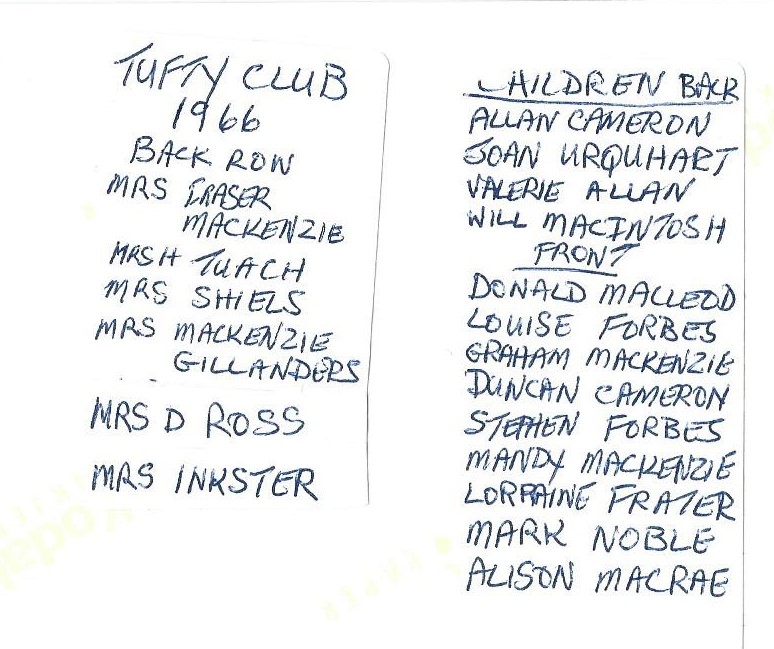 TUFTY CLUB
1966
BACK ROW
MRS FRASER
MACKENZIE
MRS H TUACH
MRS SHIELS
MRS MACKENZIE
GILLANDERS
MRS D ROSS
MRS INKSTER
CHILDREN BACK
ALLAN CAMERON
JOAN URQUHART
VALERIE ALLAN
WILL MACINTOSH
FRONT
DONALD MACLEOD
LOUISE FORBES
GRAHAM MACKENZIE
DUNCAN CAMERON
STEPHEN FORBES
MANDY MACKENZIE
LORRAINE FRATER
MARK NOBLE
ALISON MACRAE